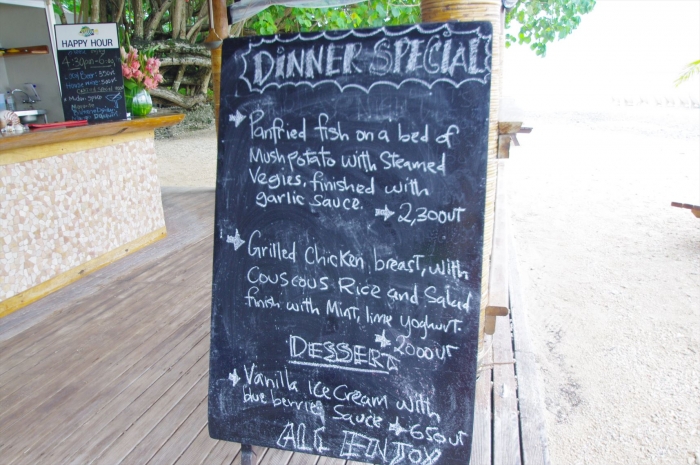 HAPPY HOUR
4:30pm-6
DINNER SPECIAL
Panfried fish on a bed of
Mush potato with Steamed
Vegies, finished with
garlic sauce.
2,300vt
Grilled Chicken breast, with
Couscous Rice and Salad
finish with Mint, lime yoghurt
2000vt
DESSERT
Vanilla Ice Cream with
blue berries Sauce
650vt
ALL ENJOY